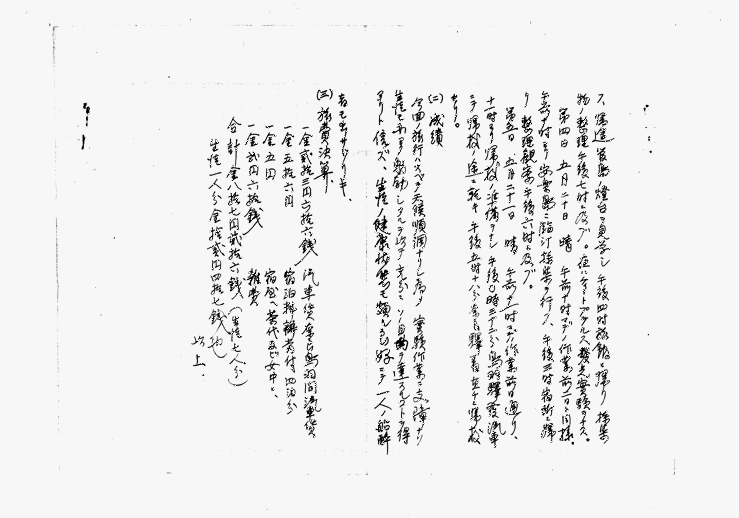 ス、帰途菅島ノ燈台ヲ見学シ午後四時旅館ニ帰リ採集
物ノ整理午後七時ニ及ブ。夜ハ
第四日 五月二十日 晴 午前十時マデノ作業前二日ト同様。
午前十時ヨリ安楽島ニ臨汀採集ヲ行フ、午後三時宿所ニ帰
リ整理観察午後六時ニ及ブ。
第五日 五月二十一日 晴 午前十一時マデノ作業前日通リ、
十一時ヨリ帰校ノ準備ヲナシ午後〇時三十三分鳥羽駅発汽車
ニテ帰校ノ途ニ就キ午後五時十八分奈良駅着直チニ帰校
セリ。
(二) 成績
今回旅行ハスベテ天候順調ナリシ為メ実験作業ニ支障ナク
生徒モ亦ヨク勉励シタルヲ以テ充分ニソノ目的ヲ達スルコトヲ得
タリト信ズ、生徒ノ健康状態モ頗ル良好ニテ一人ノ船酔
者モ出サザリキ。
(三) 旅費決算
一金弐拾三円六拾六銭 汽車賃奈良鳥羽間汽車賃
一金五拾六円 宿泊料辨当付四泊分
一金五円 宿屋ヘ茶代及ビ女中ヘ
一金弐円六拾銭 雑費
合計金八拾七円弐拾六銭(生徒七人分)
生徒一人分金拾弐円四拾七銭也
以上.